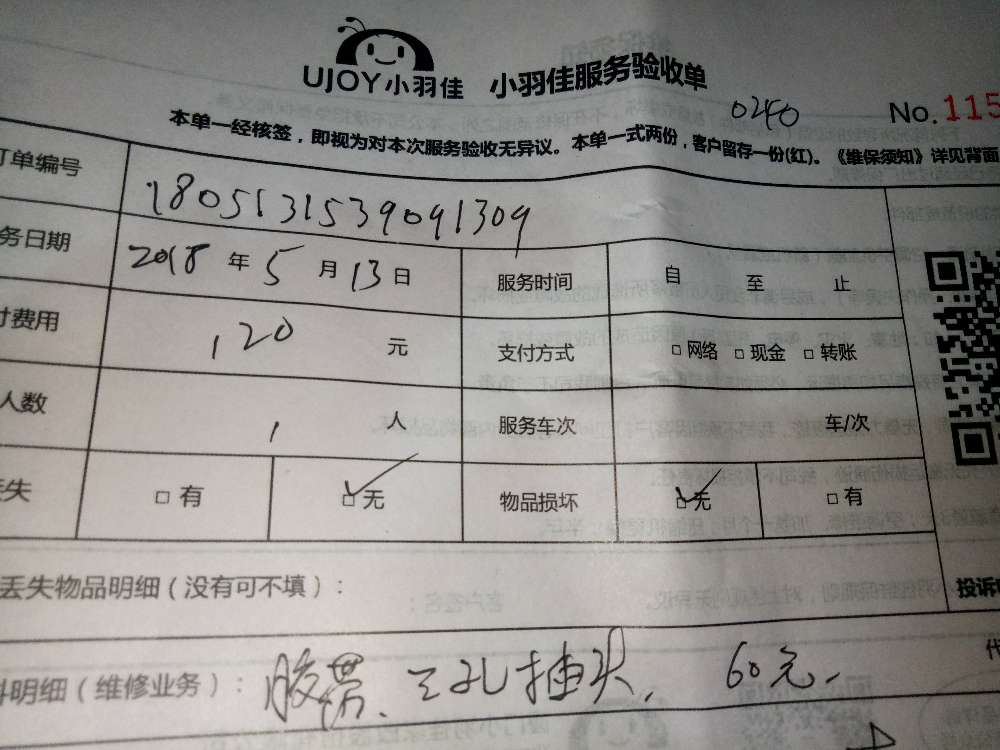 UJOY小羽佳 小羽佳服务验收单
0240 No.115
本单一经核签，即视为对本次服务验收无异议。本单一式两份，客户留存一份(红)。《维保须知》详见背面
订单编号 1805131539091309
务日期 2018年5月13日 服务时间 自 至 止
付费用 120元 支付方式 □网络 □现金 □转账
人数 1人 服务车次 车/次
丢失 □有 ☑无 物品损坏 ☑无 □有
丢失物品明细（没有可不填）： 投诉
料明细（维修业务）：胶带、三孔插头，60元。 代